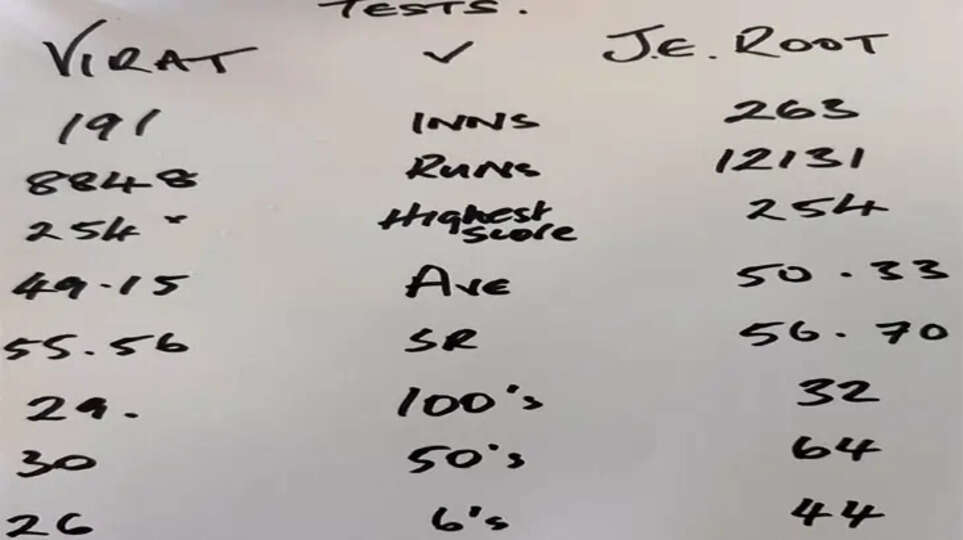 TESTS.
VIRAT ✓ J.E. ROOT
191 INNS 263
8848 RUNS 12131
254* Highest score 254
49.15 AVE 50.33
55.56 SR 56.70
29. 100's 32
30 50's 64
26 6's 44